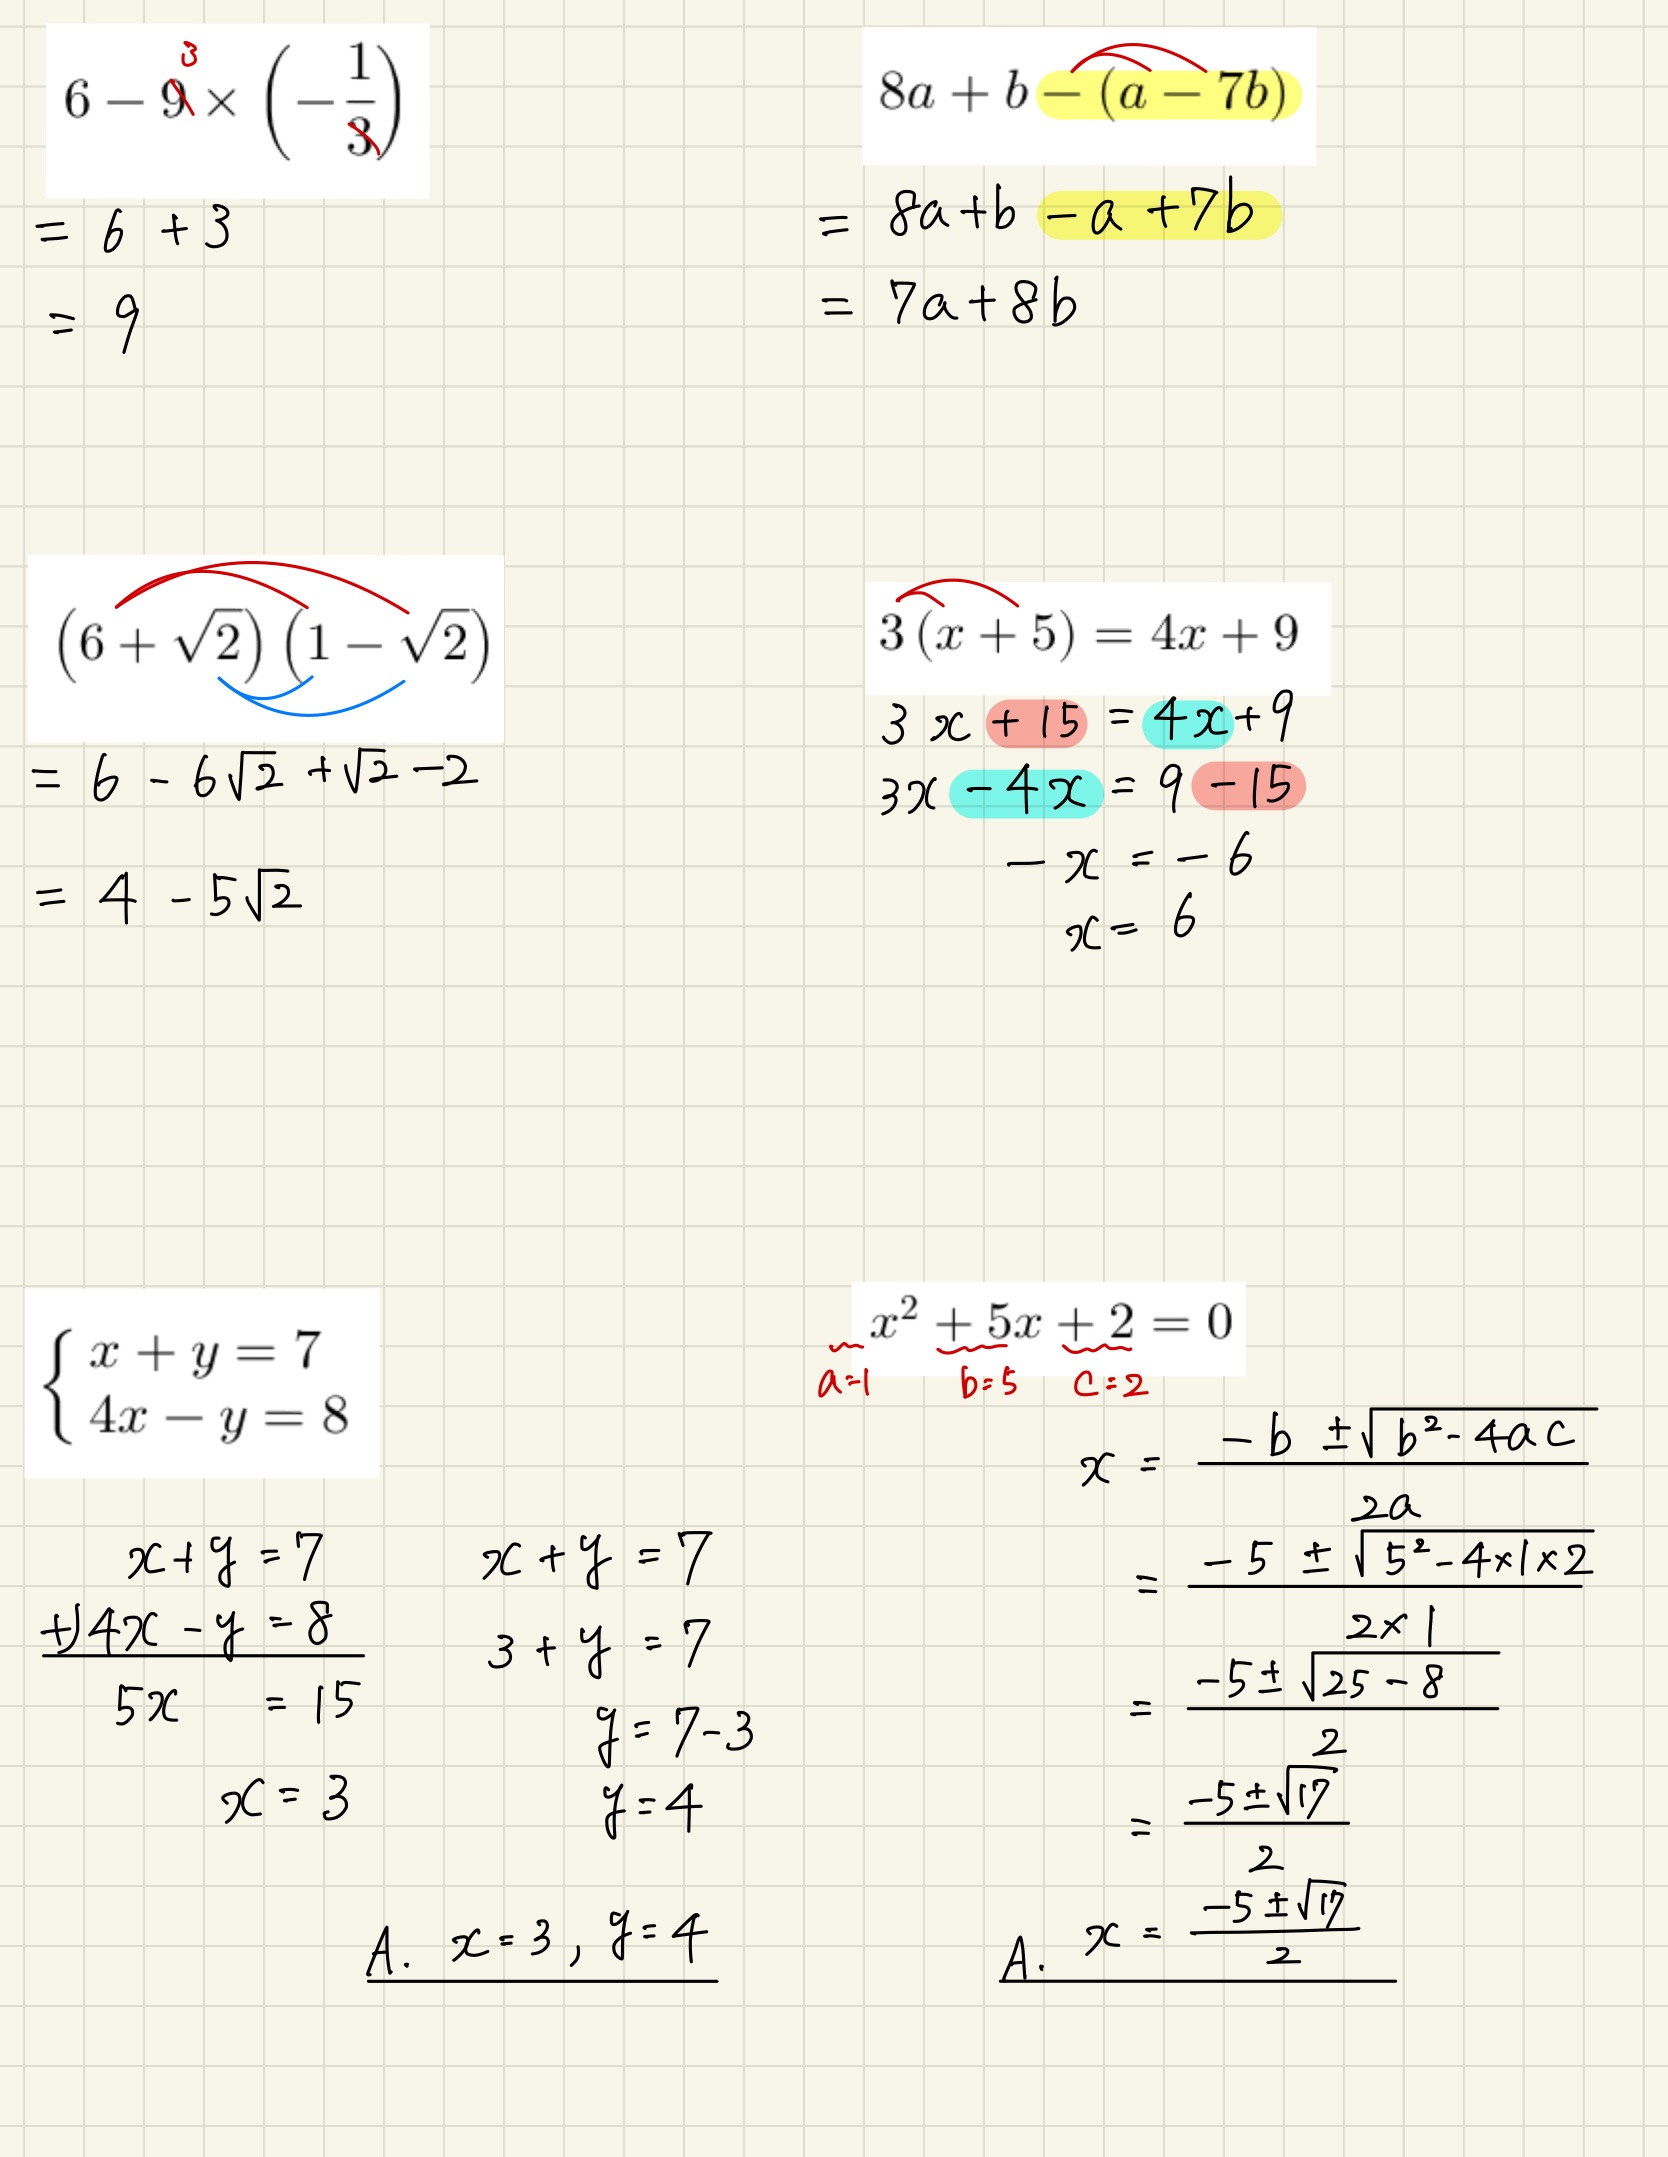 6 − 9 × (−1/3)
3
= 6 + 3
= 9
8a + b − (a − 7b)
= 8a+b −a +7b
= 7a+8b
(6 + √2)(1 − √2)
= 6 − 6√2 +√2 −2
= 4 − 5√2
3(x + 5) = 4x + 9
3x +15 = 4x+9
3x −4x = 9 −15
−x = −6
x = 6
{ x + y = 7
4x − y = 8
x+y =7
+)4x −y =8
5x = 15
x = 3
x + y = 7
3 + y = 7
y = 7−3
y = 4
A. x=3, y=4
x² + 5x + 2 = 0
a=1 b=5 c=2
x = (−b ±√(b²−4ac))/2a
= (−5 ± √(5²−4×1×2))/(2×1)
= (−5± √(25−8))/2
= (−5±√17)/2
A. x = (−5±√17)/2